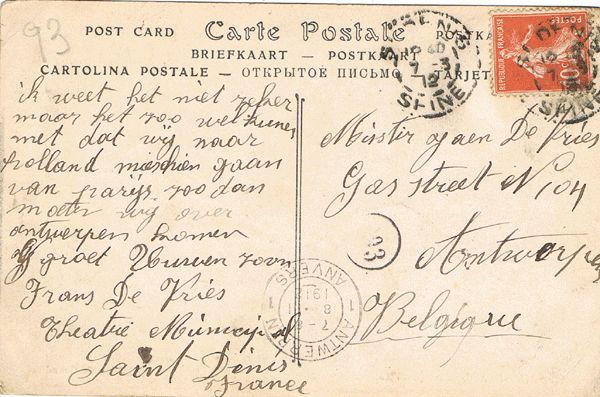 93
POST CARD Carte Postale POSTKA
BRIEFKAART — POSTKAART
CARTOLINA POSTALE — ОТКРЫТОЕ ПИСЬМО — TARJET
REPUBLIQUE FRANÇAISE
POSTES
10c
7-3
12
SEINE
ik weet het niet zeker
maar het zoo wel kunen
met dat wij naar
holland mischien gaan
van parijs zoo dan
moeten wij over
antwerpen komen
groet Uwen zoon
Frans De Vriès
Theatre Municipal
Saint Denis
France
Mister De Vries
Gasstreet N 104
Antwerpen
Belgique
93
ANTWERPEN 1
ANVERS 1
7-8
8
1912